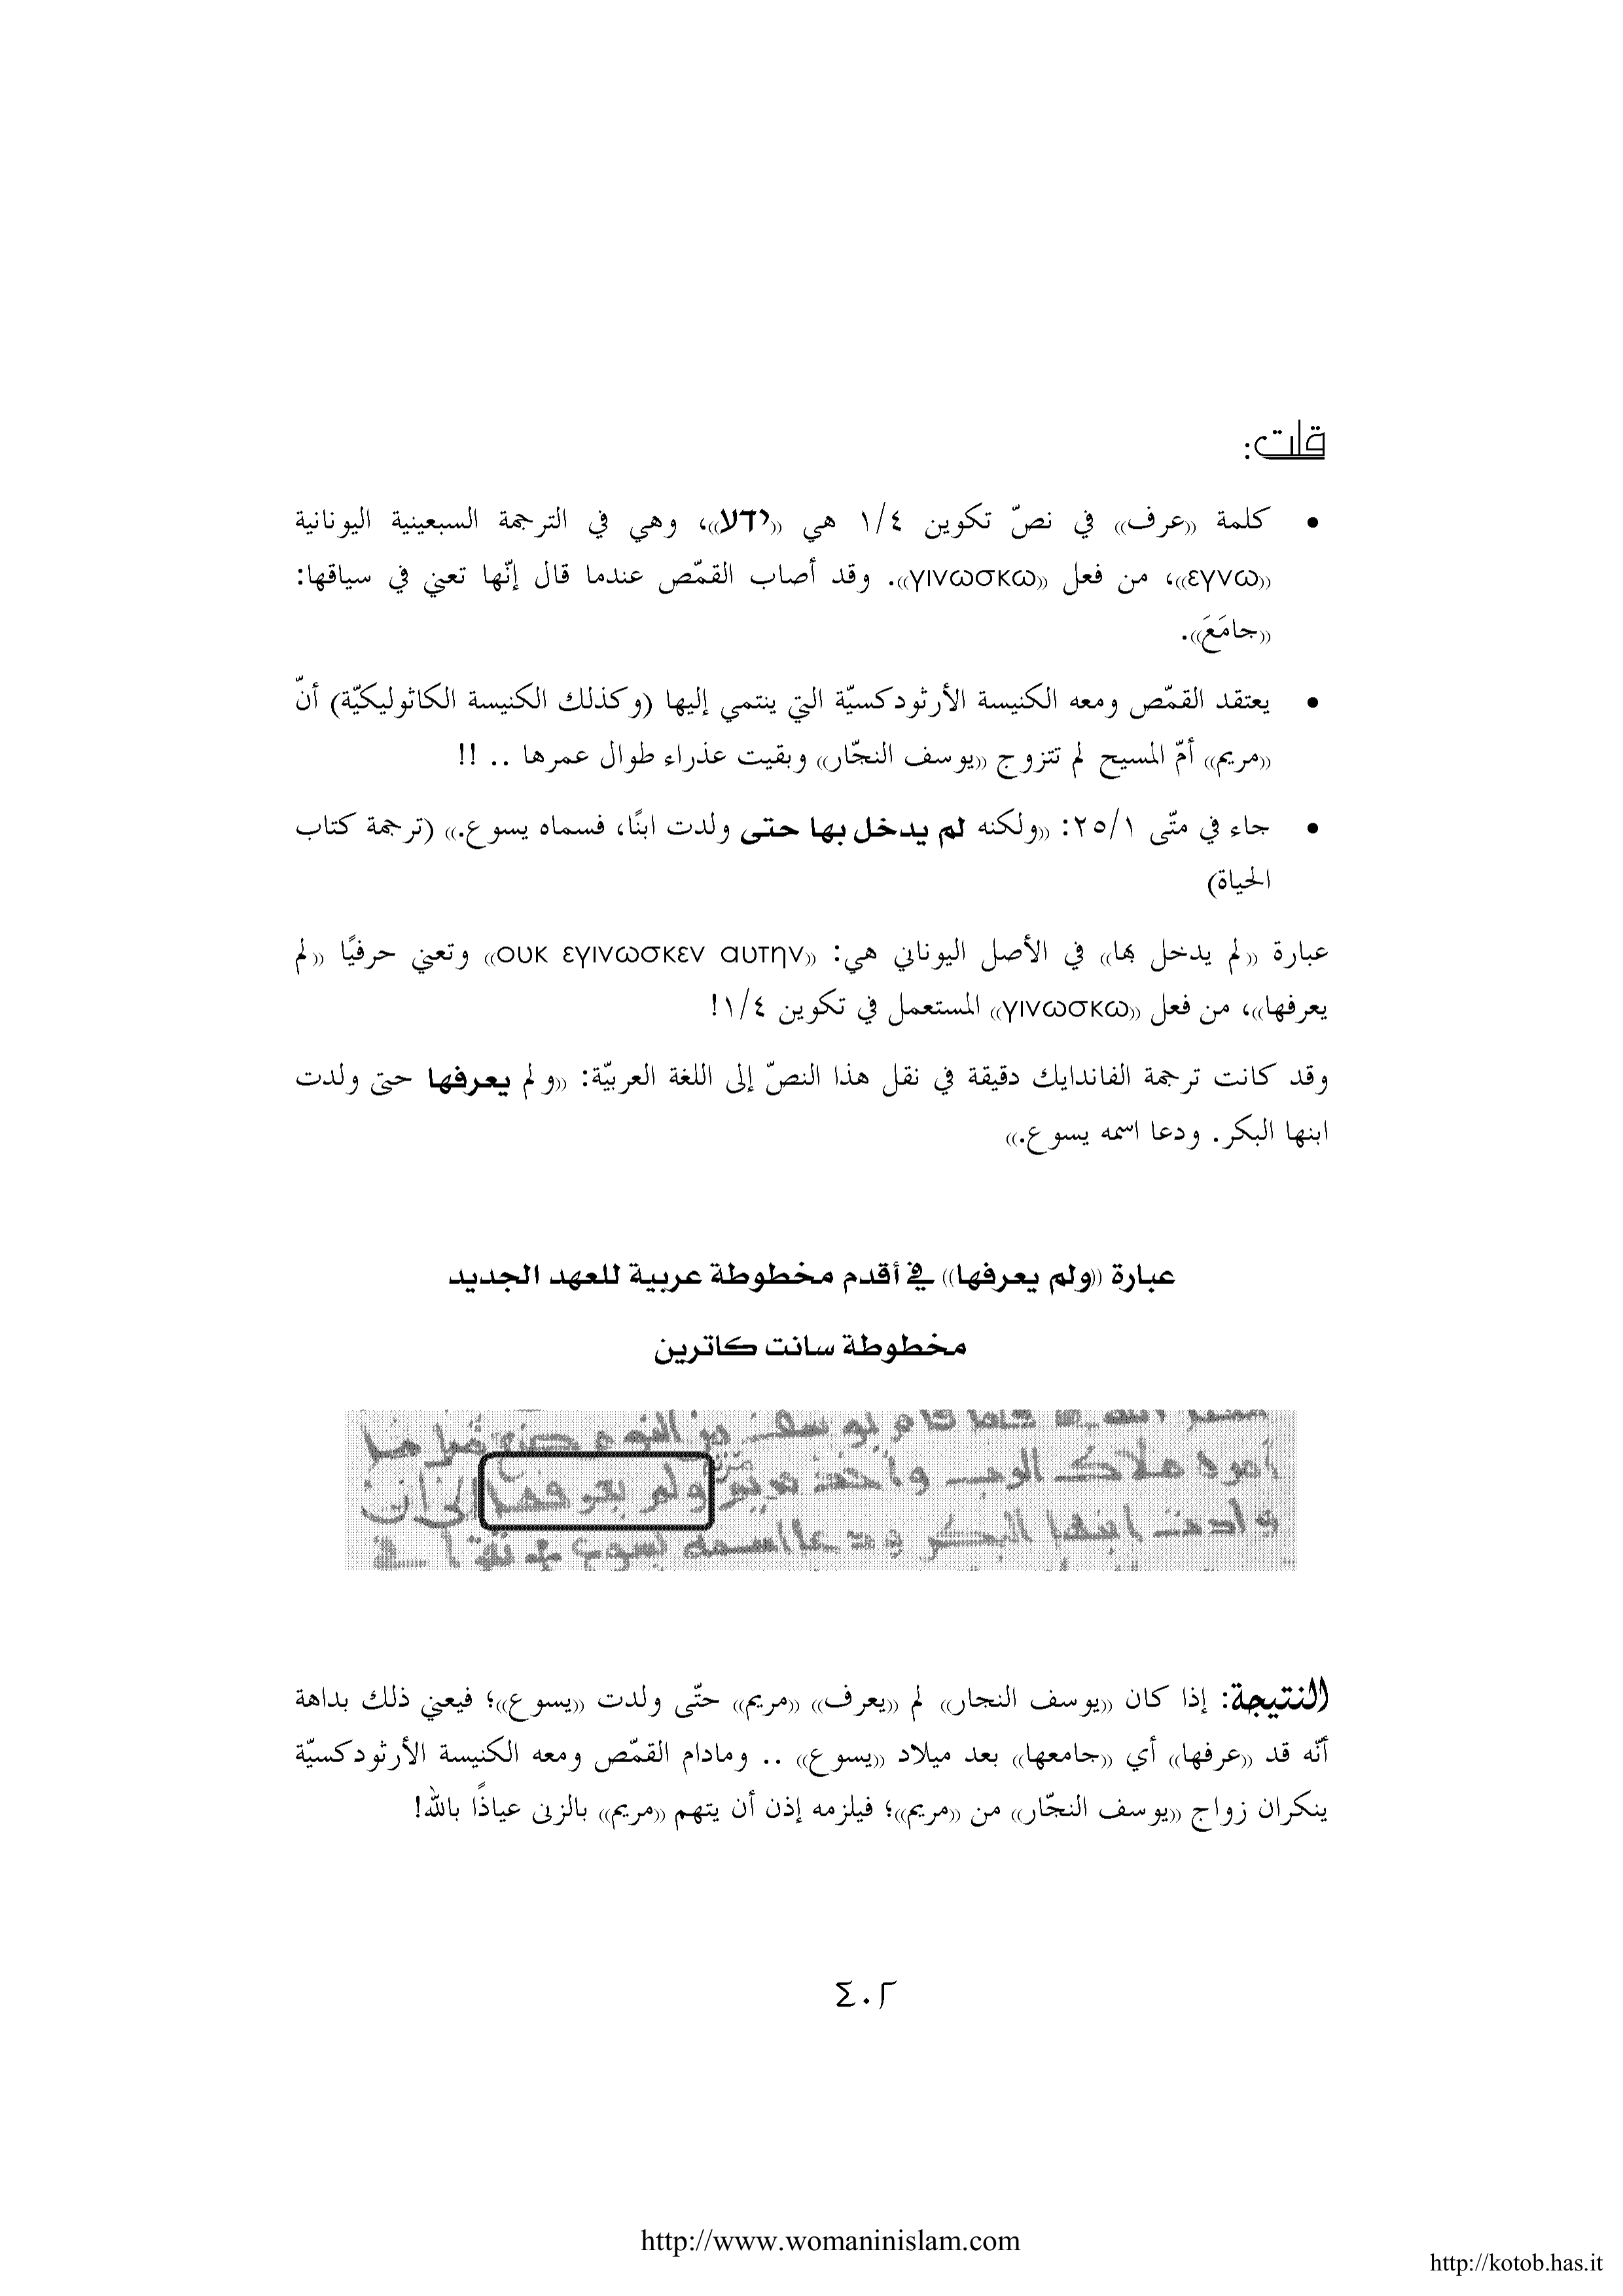 قلت:
• كلمة «عرف» في نصّ تكوين ٤/١ هي «ידע»، وهي في الترجمة السبعينية اليونانية
«εγνω»، من فعل «γινωσκω». وقد أصاب القمّص عندما قال إنّها تعني في سياقها:
«جامَعَ».
• يعتقد القمّص ومعه الكنيسة الأرثودكسيّة التي ينتمي إليها (وكذلك الكنيسة الكاثوليكيّة) أنّ
«مريم» أمّ المسيح لم تتزوج «يوسف النجّار» وبقيت عذراء طوال عمرها .. !!
• جاء في متّى ٢٥/١: «ولكنه لم يدخل بها حتى ولدت ابنًا، فسماه يسوع.» (ترجمة كتاب
الحياة)
عبارة «لم يدخل بها» في الأصل اليوناني هي: «ουκ εγινωσκεν αυτην» وتعني حرفيًا «لم
يعرفها»، من فعل «γινωσκω» المستعمل في تكوين ٤/١!
وقد كانت ترجمة الفاندايك دقيقة في نقل هذا النصّ إلى اللغة العربيّة: «ولم يعرفها حتى ولدت
ابنها البكر. ودعا اسمه يسوع.»
عبارة «ولم يعرفها» في أقدم مخطوطة عربية للعهد الجديد
مخطوطة سانت كاترين
قام يوسف من النوم صنع
امره ملاك الرب واخذ مريم ولم يعرفها الى ان
ولدت ابنها البكر ودعا اسمه يسوع
النتيجة: إذا كان «يوسف النجار» لم «يعرف» «مريم» حتّى ولدت «يسوع»؛ فيعني ذلك بداهة
أنّه قد «عرفها» أي «جامعها» بعد ميلاد «يسوع» .. ومادام القمّص ومعه الكنيسة الأرثودكسيّة
ينكران زواج «يوسف النجّار» من «مريم»؛ فيلزمه إذن أن يتهم «مريم» بالزنى عياذًا بالله!
٤٠٢
http://www.womaninislam.com
http://kotob.has.it